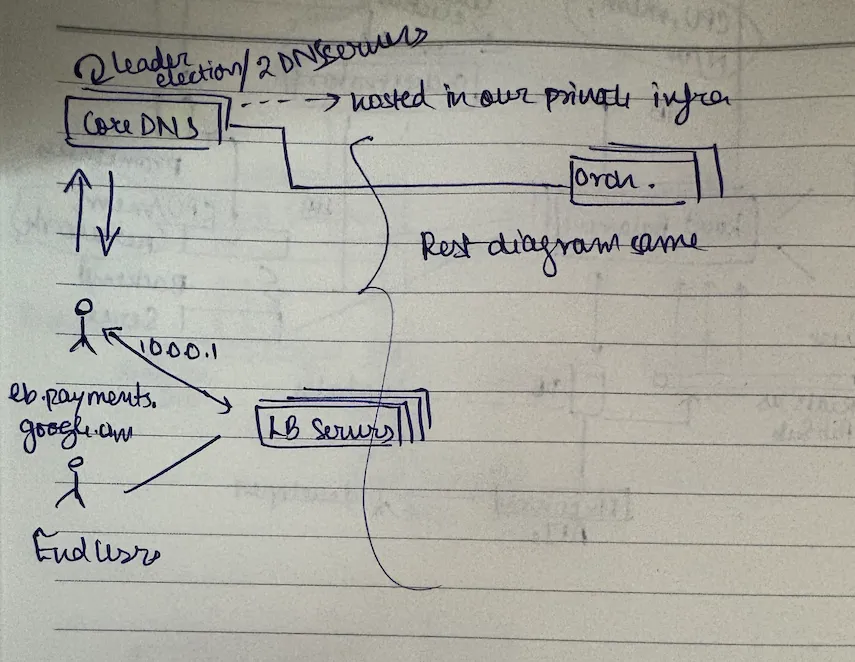 Leader
election/2 DNS servers
Core DNS
hosted in our private infra
Orch.
Rest diagram same
10.0.0.1
eb.payments.
google.com
LB Servers
End Users